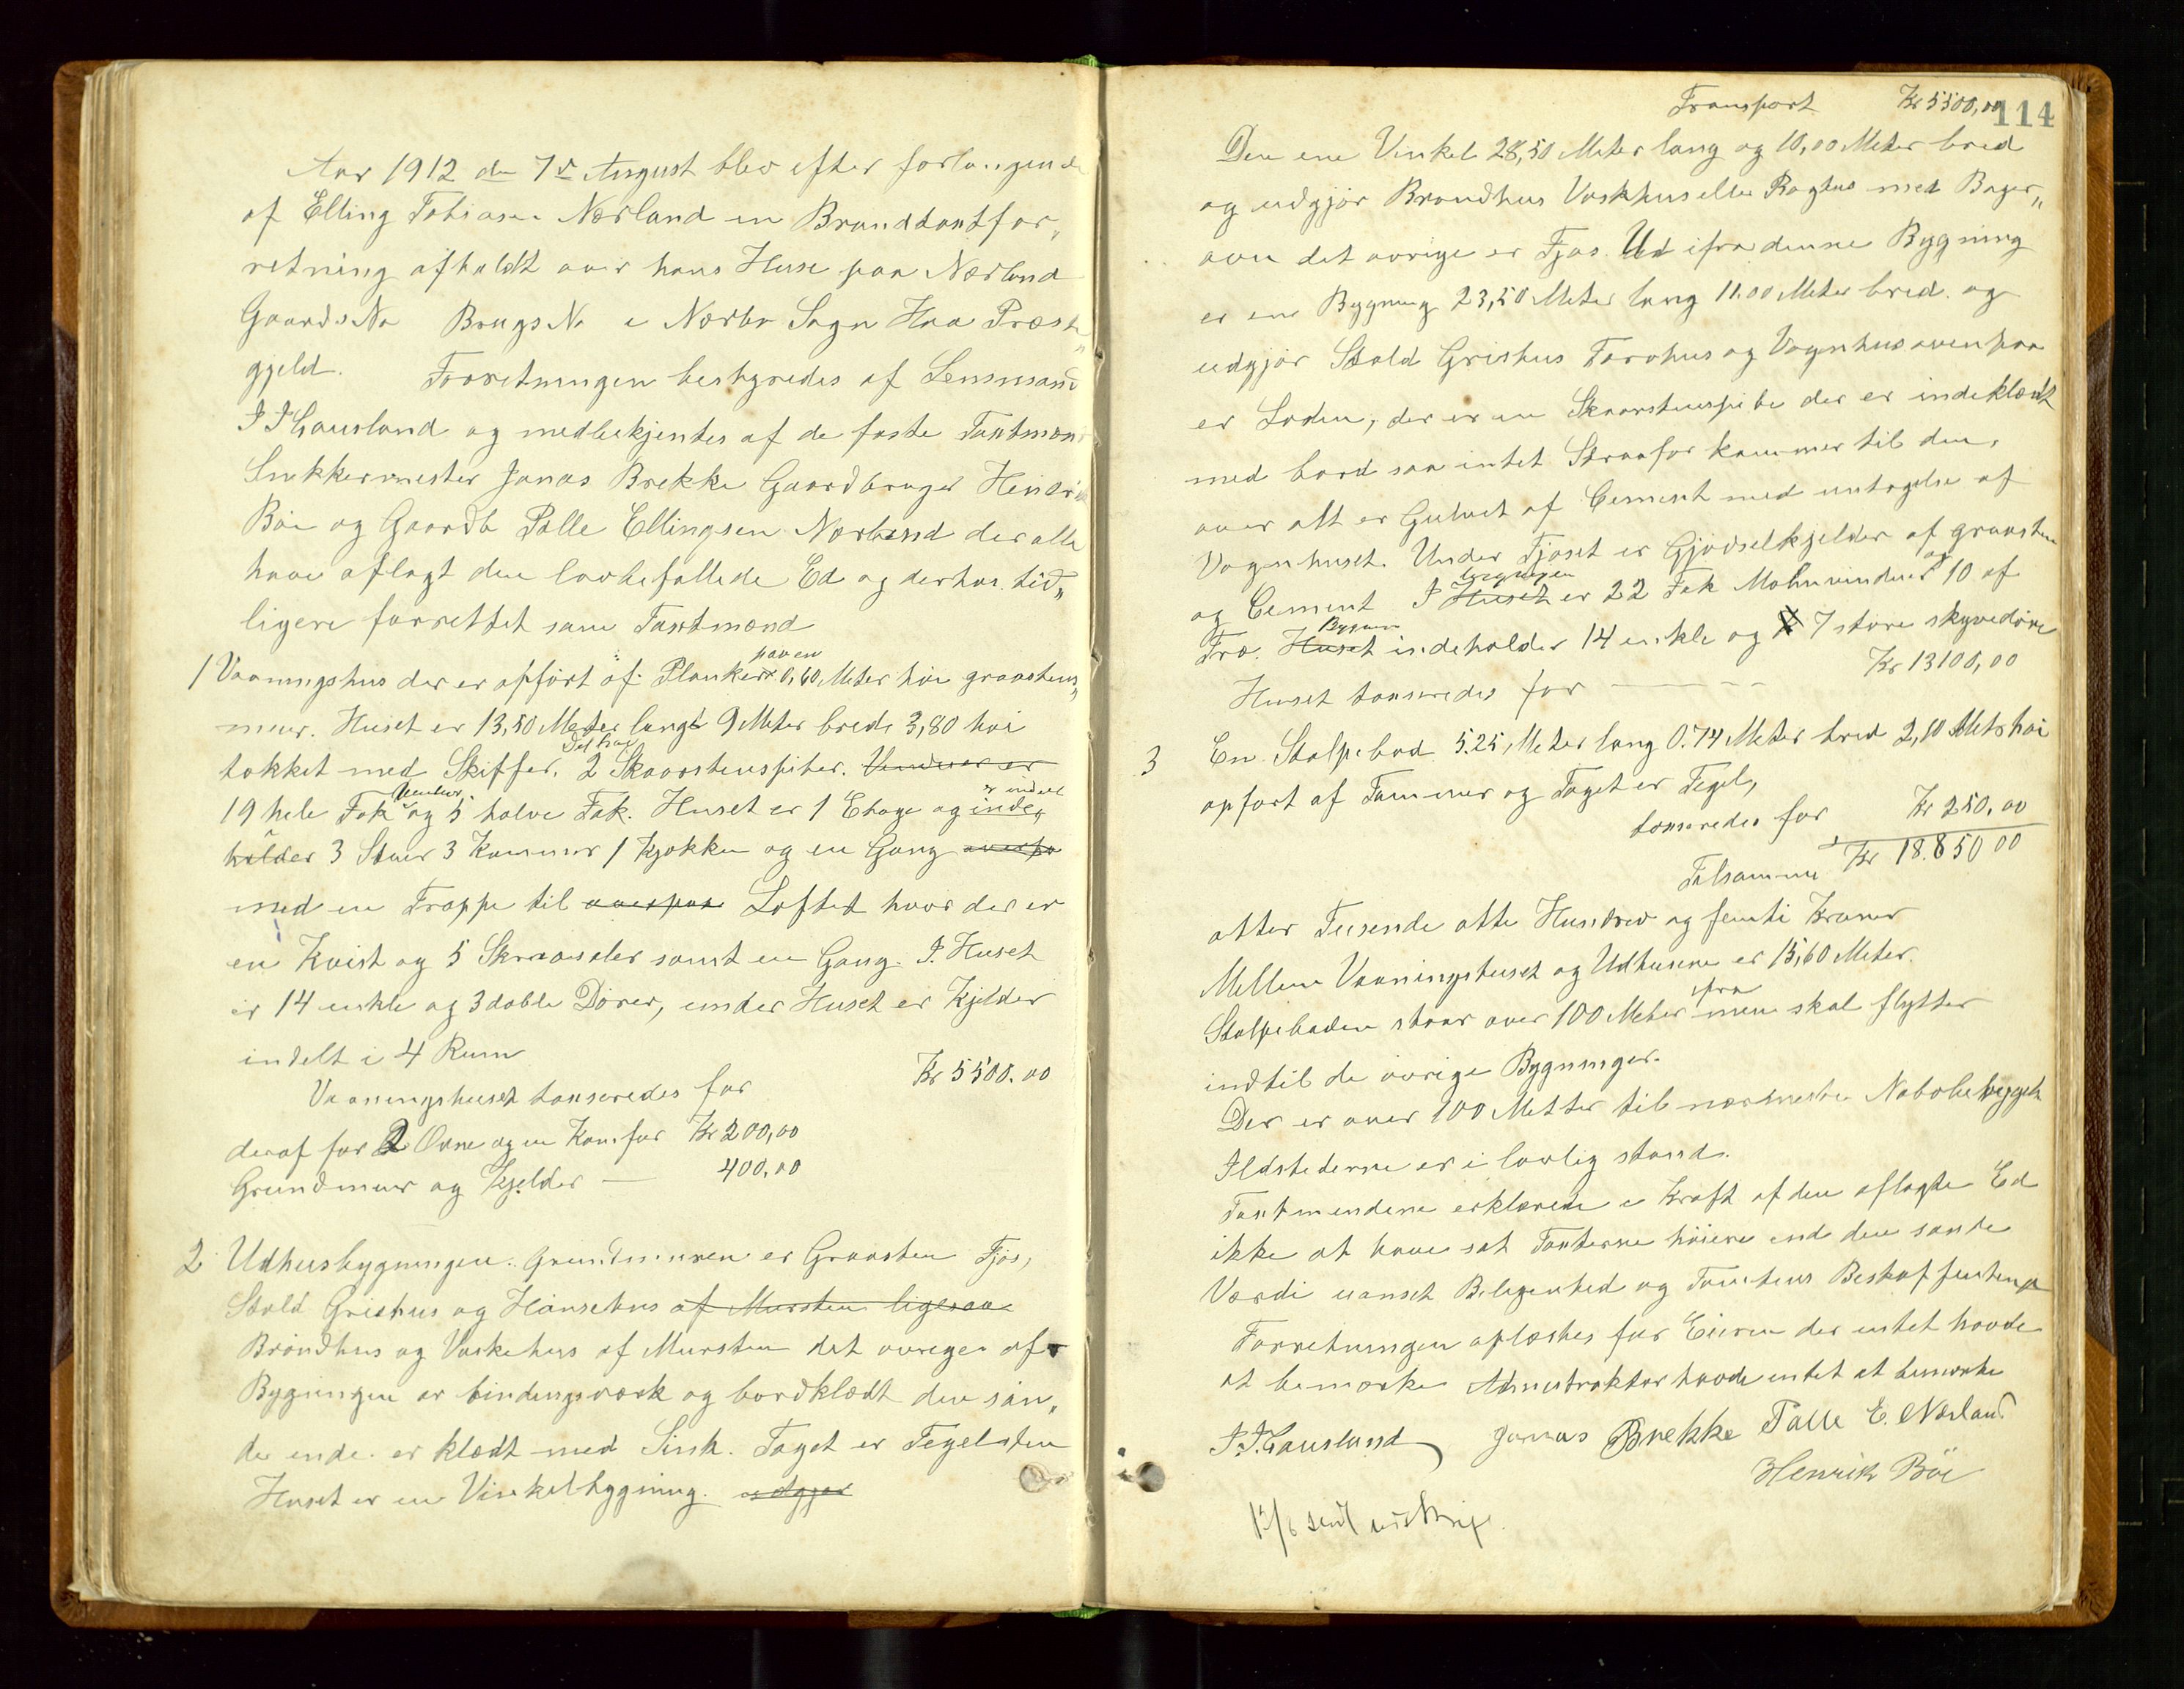 Aar 1912 den 7de August blev efter forlangende
af Elling Tobiasen Nærland en Brandtaxtfor„
retning afholdt over hans Huse paa Nærland
Gaards No Brugs No i Nærbø Sogn Haa Præste„
gjeld. Forretningen bestyredes af Lensmand
J J Gausland og medbekjentes af de faste Taxtmænd
Snekkermester Jonas Brekke Gaardbruger Hendrik
Bøe og Gaardb Palle Ellingsen Nærland der alle
have aflagt den lovbefallede Ed og derhos tid„
ligere forrettet som Taxtmænd
1 Vaaningshus der er opført af Planker paa en 0,60 Meter høi graastens„
muur. Huset er 13,50 Meter langt 9 Meter bred 3,80 høi
takket med Skiffer. Det har 2 Skaarstenspiber. Vinduer er
19 hele Fak Vinduer og 5 halve Fak. Huset er 1 Etage og inde„ er indeel
holder 3 Stuer 3 Kammer 1 Kjøkken og en Gang ovenpa
med en Trappe til ovenpaa Loftet hvor der er
en Kvist og 5 Skraasaler samt en Gang. I Huset
er 14 enkle og 3 doble Dører, under Huset er Kjelder
indelt i 4 Rum
Vaaningshuset taxseredes for Kr 5500.00
deraf for 2 Ovne og en Komfur Kr 200,00
Grundmuur og Kjelder — 400,00
2 Udhusbygningen. Grundmuren er Graasten Fjøs,
Stald Grishus og Hønsehus af Mursten ligesaa
Brøndhus og Vaskehus af Mursten det øvrige af
Bygningen er bindingsværk og bordklædt den søn„
dr ende er klædt med Sink. Taget er Tegelsten
Huset er en Vinkelbygning. udgjør
Transport Kr 5500,00
114
Den ene Vinkel 28,50 Meter lang og 10,00 Meter bred
og udgjør Brøndhus Vaskhus eller Røghus med Bager„
oven det øvrige er Fjøs. Ud ifra denne Bygning
er en Bygning 23,50 Meter lang 11.00 Meter bred og
udgjør Stald Grishus Torvhus og Vognhus ovenpaa
er Loden, der er en Skaarstenspibe der er indeklædt
med bord saa intet Straafor kommer til den,
over alt er Gulvet af Cement med untagelse af
Vognhuset. Under Fjøset er Gjødselkjelder af graasten
og Cement I Huset bygningen er 22 Fak Malmvinduer og 10 af
Træ. Huset Bygnin indeholder 14 enkle og 7 store skyvedøre
Huset taxseredes for — — — Kr 13100,00
3 En Stolpebod 5.25 Meter lang 0.74 Meter bred 2,10 Met høi
opført af Tømmer og Taget er Tegel,
taxseredes for Kr 250,00
Tilsammen Kr 18.850 00
atter Tusende otte Hundrev og femti Kroner
Mellem Vaaningshuset og Udhusene er 15,60 Meter.
Stolpeboden staar over 100 Meter ifra men skal flytter
indtil de øvrige Bygninger.
Der er over 100 Metter til nærmeste Nabobebyggels
Ildstederne er i lovlig stand.
Taxtmendene erklærede i Kraft af den aflagte Ed
ikke at have sat Taxterne høiere end den sande
Værdi uanset Beligenhed og Tomtens Beskaffenhed
Forretningen oplæstes for Eieren der intet havde
at bemærke Administraktor havde intet at bemærke
J.J. Gausland Jonas Brekke Palle E. Nærland
Henrik Böe